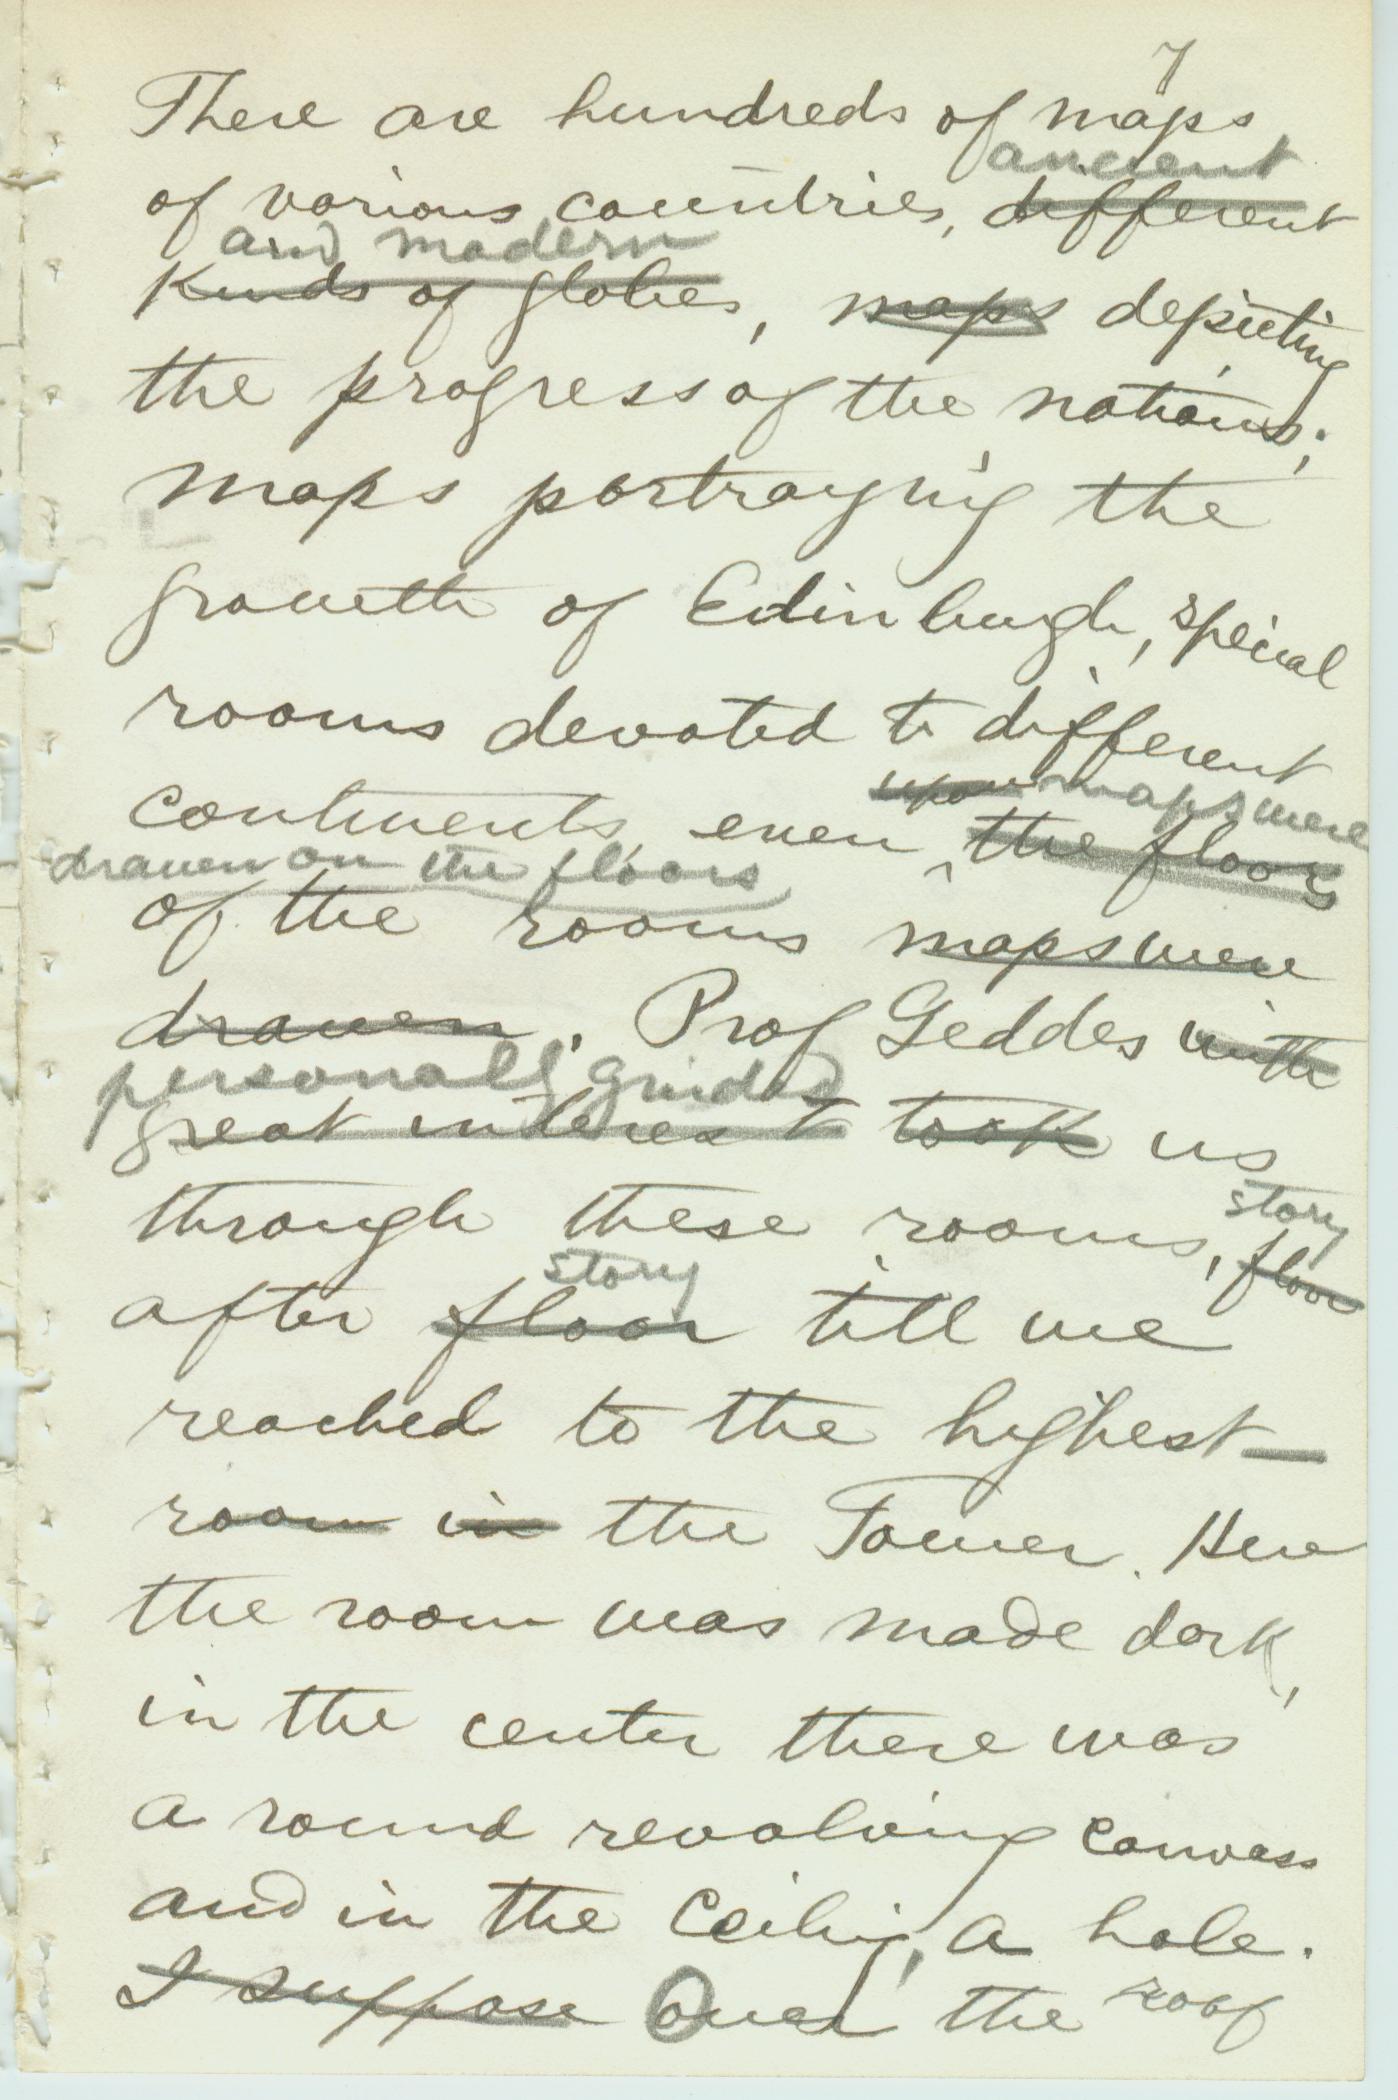 7
There are hundreds of maps
ancient
of various countries, different
and modern
kinds of globes, maps depicting
the progress of the nations;
maps portraying the
growth of Edinburgh, special
rooms devoted to different
upon maps were
continents, even the floors
drawn on the floors
of the rooms maps were
drawn. Prof Geddes with
personally guided
great interest took us
through these rooms, floor
story
story
after floor till we
reached to the highest
room in the Tower. Here
the room was made dark,
in the center there was
a round revolving canvass
and in the ceiling, a hole.
I suppose Over the roof